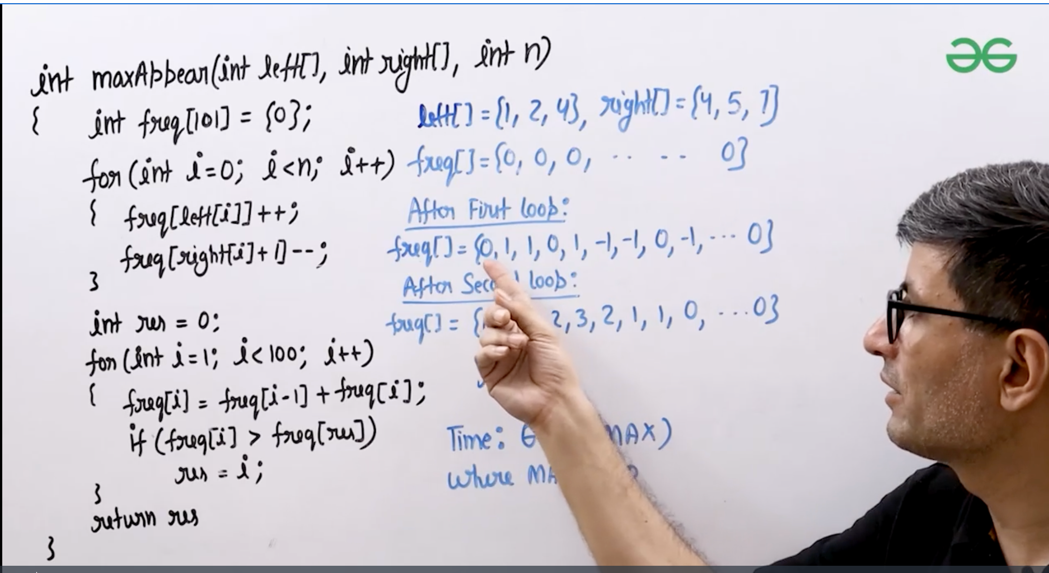 int maxAppear(int left[], int right[], int n)
{ int freq[101] = {0};
for(int i=0; i<n; i++)
{ freq[left[i]]++;
freq[right[i]+1]--;
}
int res = 0;
for(int i=1; i<100; i++)
{ freq[i] = freq[i-1] + freq[i];
if (freq[i] > freq[res])
res = i;
}
return res
}
left[] = {1, 2, 4}, right[] = {4, 5, 7}
freq[] = {0, 0, 0, ... .. 0}
After First loop:
freq[] = {0, 1, 1, 0, 1, -1, -1, 0, -1, ... 0}
After loop:
freq[] = { 2, 3, 2, 1, 1, 0, ... 0}
Time: MAX)
where